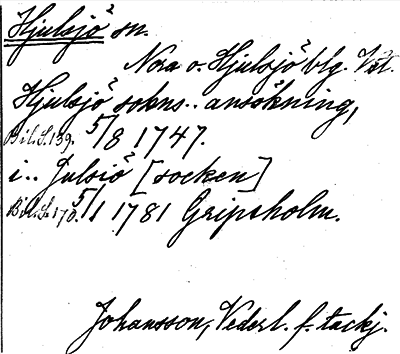 Hjulsjö sn.
Nora o. Hjulsjö blg. Vst.
Hjulsjö sokns.. ansökning,
Bil. S. 139. 5/8 1747.
i.. Julsiö [socken]
Bil. S. 170. 5/1 1781 Gripsholm.
Johansson, Vederl. f. tackj.